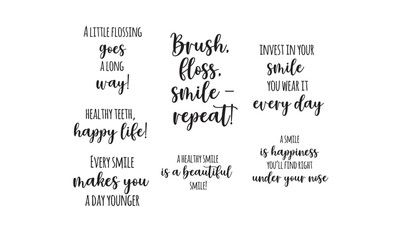 A LITTLE FLOSSING
goes
A LONG
way!
HEALTHY TEETH,
happy life!
EVERY SMILE
makes you
A DAY YOUNGER
Brush,
floss,
smile –
repeat!
A HEALTHY SMILE
is a beautiful
SMILE!
INVEST IN YOUR
smile
YOU WEAR IT
every day
A SMILE
is happiness
YOU'LL FIND RIGHT
under your nose